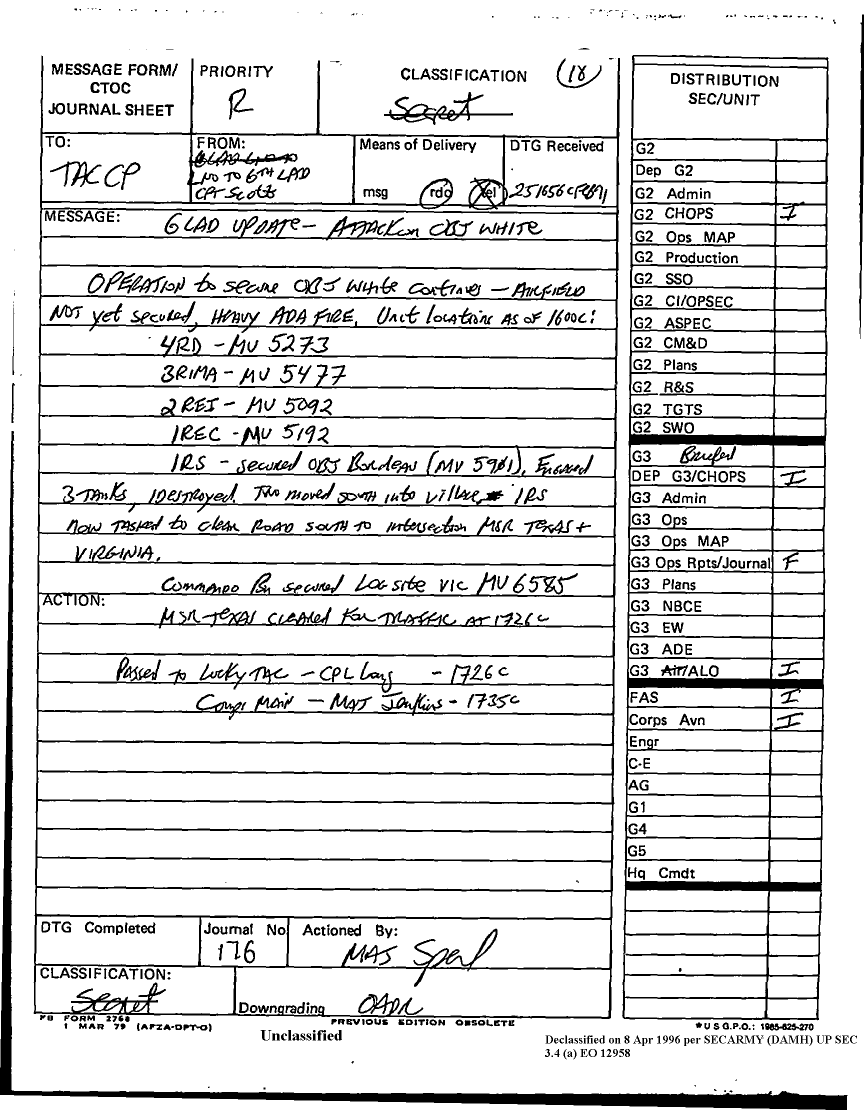 MESSAGE FORM/
CTOC
JOURNAL SHEET
PRIORITY
R
CLASSIFICATION
Secret
(18)
TO:
TAC CP
FROM:
LNO TO 6TH LAD
CPT Scott
Means of Delivery
msg rdo tel
DTG Received
251656CFEB91
MESSAGE:
6LAD UPDATE - ATTACK on OBJ WHITE
OPERATION to secure OBJ White continues - AIRFIELD
NOT yet secured, HEAVY ADA FIRE, Unit locations AS OF 1600C:
4RD - MV 5273
3RIMA - MV 5477
2REI - MV 5092
1REC - MV 5192
1RS - secured OBJ Bordeau (MV 5961), Engaged
3 TANKS, 1 DESTROYED. Two moved south into village, 1RS
now TASKED to clear ROAD SOUTH TO intersection MSR TEXAS +
VIRGINIA.
Commando Bn secured Log site vic MV 6585
ACTION:
MSR TEXAS CLEARED FOR TRAFFIC AT 1726C
Passed to Lucky TAC - CPL Lang - 1726C
Corps MAIN - MAJ Jenkins - 1735C
DTG Completed
Journal No
176
Actioned By:
MAJ
CLASSIFICATION:
Secret
Downgrading OADR
FB FORM 2768
1 MAR 79 (AFZA-DPT-O)
PREVIOUS EDITION OBSOLETE
Unclassified
DISTRIBUTION
SEC/UNIT
G2
Dep G2
G2 Admin
G2 CHOPS I
G2 Ops MAP
G2 Production
G2 SSO
G2 CI/OPSEC
G2 ASPEC
G2 CM&D
G2 Plans
G2 R&S
G2 TGTS
G2 SWO
G3 Briefed
DEP G3/CHOPS I
G3 Admin
G3 Ops
G3 Ops MAP
G3 Ops Rpts/Journal F
G3 Plans
G3 NBCE
G3 EW
G3 ADE
G3 Air/ALO I
FAS I
Corps Avn I
Engr
C-E
AG
G1
G4
G5
Hq Cmdt
*U S G.P.O.: 1985-625-270
Declassified on 8 Apr 1996 per SECARMY (DAMH) UP SEC
3.4 (a) EO 12958